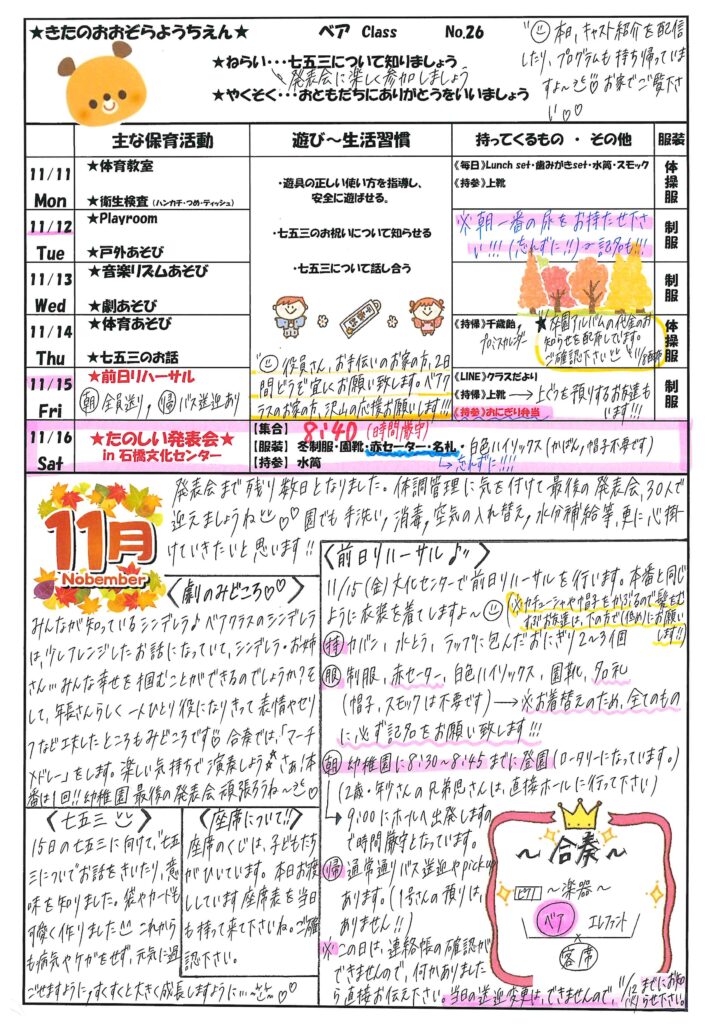 ★きたのおおぞらようちえん★
ベア Class No.26
★ねらい･･･七五三について知りましょう
発表会に楽しく参加しましょう
★やくそく･･･おともだちにありがとうをいいましょう
本日、キャスト紹介を配信
したり、プログラムも持ち帰っていま
すよ〜♡お家でご覧下さ
い♡♡
主な保育活動
遊び〜生活習慣
持ってくるもの ・ その他
服装
11/11
Mon
★体育教室
★衛生検査（ハンカチ・つめ・ティッシュ）
《毎日》Lunch set・歯みがきset・水筒・スモック
《持参》上靴
体操服
11/12
Tue
★Playroom
★戸外あそび
※朝一番の尿をお持たせ下さ
い!!!(忘れずに!!)→記名も!!!
制服
11/13
Wed
★音楽リズムあそび
★劇あそび
制服
11/14
Thu
★体育あそび
★七五三のお話
《持帰》千歳飴,
プロミスカレンダー
★卒園アルバムの代金のお
知らせを配布しています。
ご確認下さい
体操服
11/15
Fri
★前日リハーサル
朝 全員送り, 帰 バス送迎あり
《LINE》クラスだより
《持帰》上靴 → 上ぐつを預りするお友達も
います!!!
《持参》おにぎり弁当
制服
・遊具の正しい使い方を指導し、
安全に遊ばせる。
・七五三のお祝いについて知らせる
・七五三について話し合う
役員さん、お手伝いのお家の方、2日
間どうぞ宜しくお願い致します。ベアク
ラスのお家の方、沢山の応援お願いします!!!
11/16
Sat
★たのしい発表会★
in 石橋文化センター
【集合】 8:40 (時間厳守)
【服装】 冬制服・園靴・赤セーター・名札・白色ハイソックス(かばん,帽子不要です)
→忘れずに!!!
【持参】 水筒
11月
Nobember
発表会まで残り数日となりました。体調管理に気を付けて最後の発表会、30人で
迎えましょうね♡♡園でも手洗い, 消毒, 空気の入れ替え, 水分補給等, 更に心掛
けていきたいと思います!!
〈劇のみどころ♡♡〉
みんなが知っているシンデレラ♪ベアクラスのシンデレラ
は、少しアレンジしたお話になっていて、シンデレラ・お姉
さん…みんな幸せを掴むことができるのでしょうか?そ
して、年長さんらしく一人ひとり役になりきって表情やセリ
フなど工夫したところもみどころです♡合奏では、「マーチ
メドレー」をします。楽しい気持ちで演奏しよう☆さぁ!本
番は1回!!幼稚園最後の発表会頑張ろうね〜♡
〈前日リハーサル♪〉
11/15(金)文化センターで前日リハーサルを行います。本番と同じ
ように衣装を着てしますよ〜
※カチューシャや帽子をかぶるので髪をむ
すぶお友達は、下の方で(低めに)お願い
します!!
持 カバン, 水とう, ラップに包んだおにぎり2〜3個
服 制服, 赤セーター, 白色ハイソックス, 園靴, 名札
(帽子, スモックは不要です) → ※お着替えのため、全てのもの
に必ず記名をお願い致します!!!
朝 幼稚園に8:30〜8:45までに登園(ロータリーになっています。)
(2歳・年少さんの兄弟児さんは、直接ホールに行って下さい)
→9:00にホールへ出発しますの
で時間厳守となっています。
帰 通常通りバス送迎やpick up
あります。(1号さんの預りは、
ありません!!)
※この日は、連絡帳の確認が
できませんので、何かありました
ら直接お伝え下さい。当日の送迎変更は、できませんので、11/12(火)までにお知
らせ下さい。
〈七五三〉
15日の七五三に向けて、“七五
三についてお話をきいたり、意
味を知りました。袋やカードも
可愛く作りました これから
も病気やケガをせず、元気に過
ごせますように,すくすくと大きく成長しますように…♡♡
〈座席について!!〉
座席のくじは、子どもたち
がひいています。本日お渡
ししています座席表を当日
も持って来て下さいね。ご確
認下さい。
〜合奏〜
ピアノ 〜楽器〜
ベア エレファント
客席